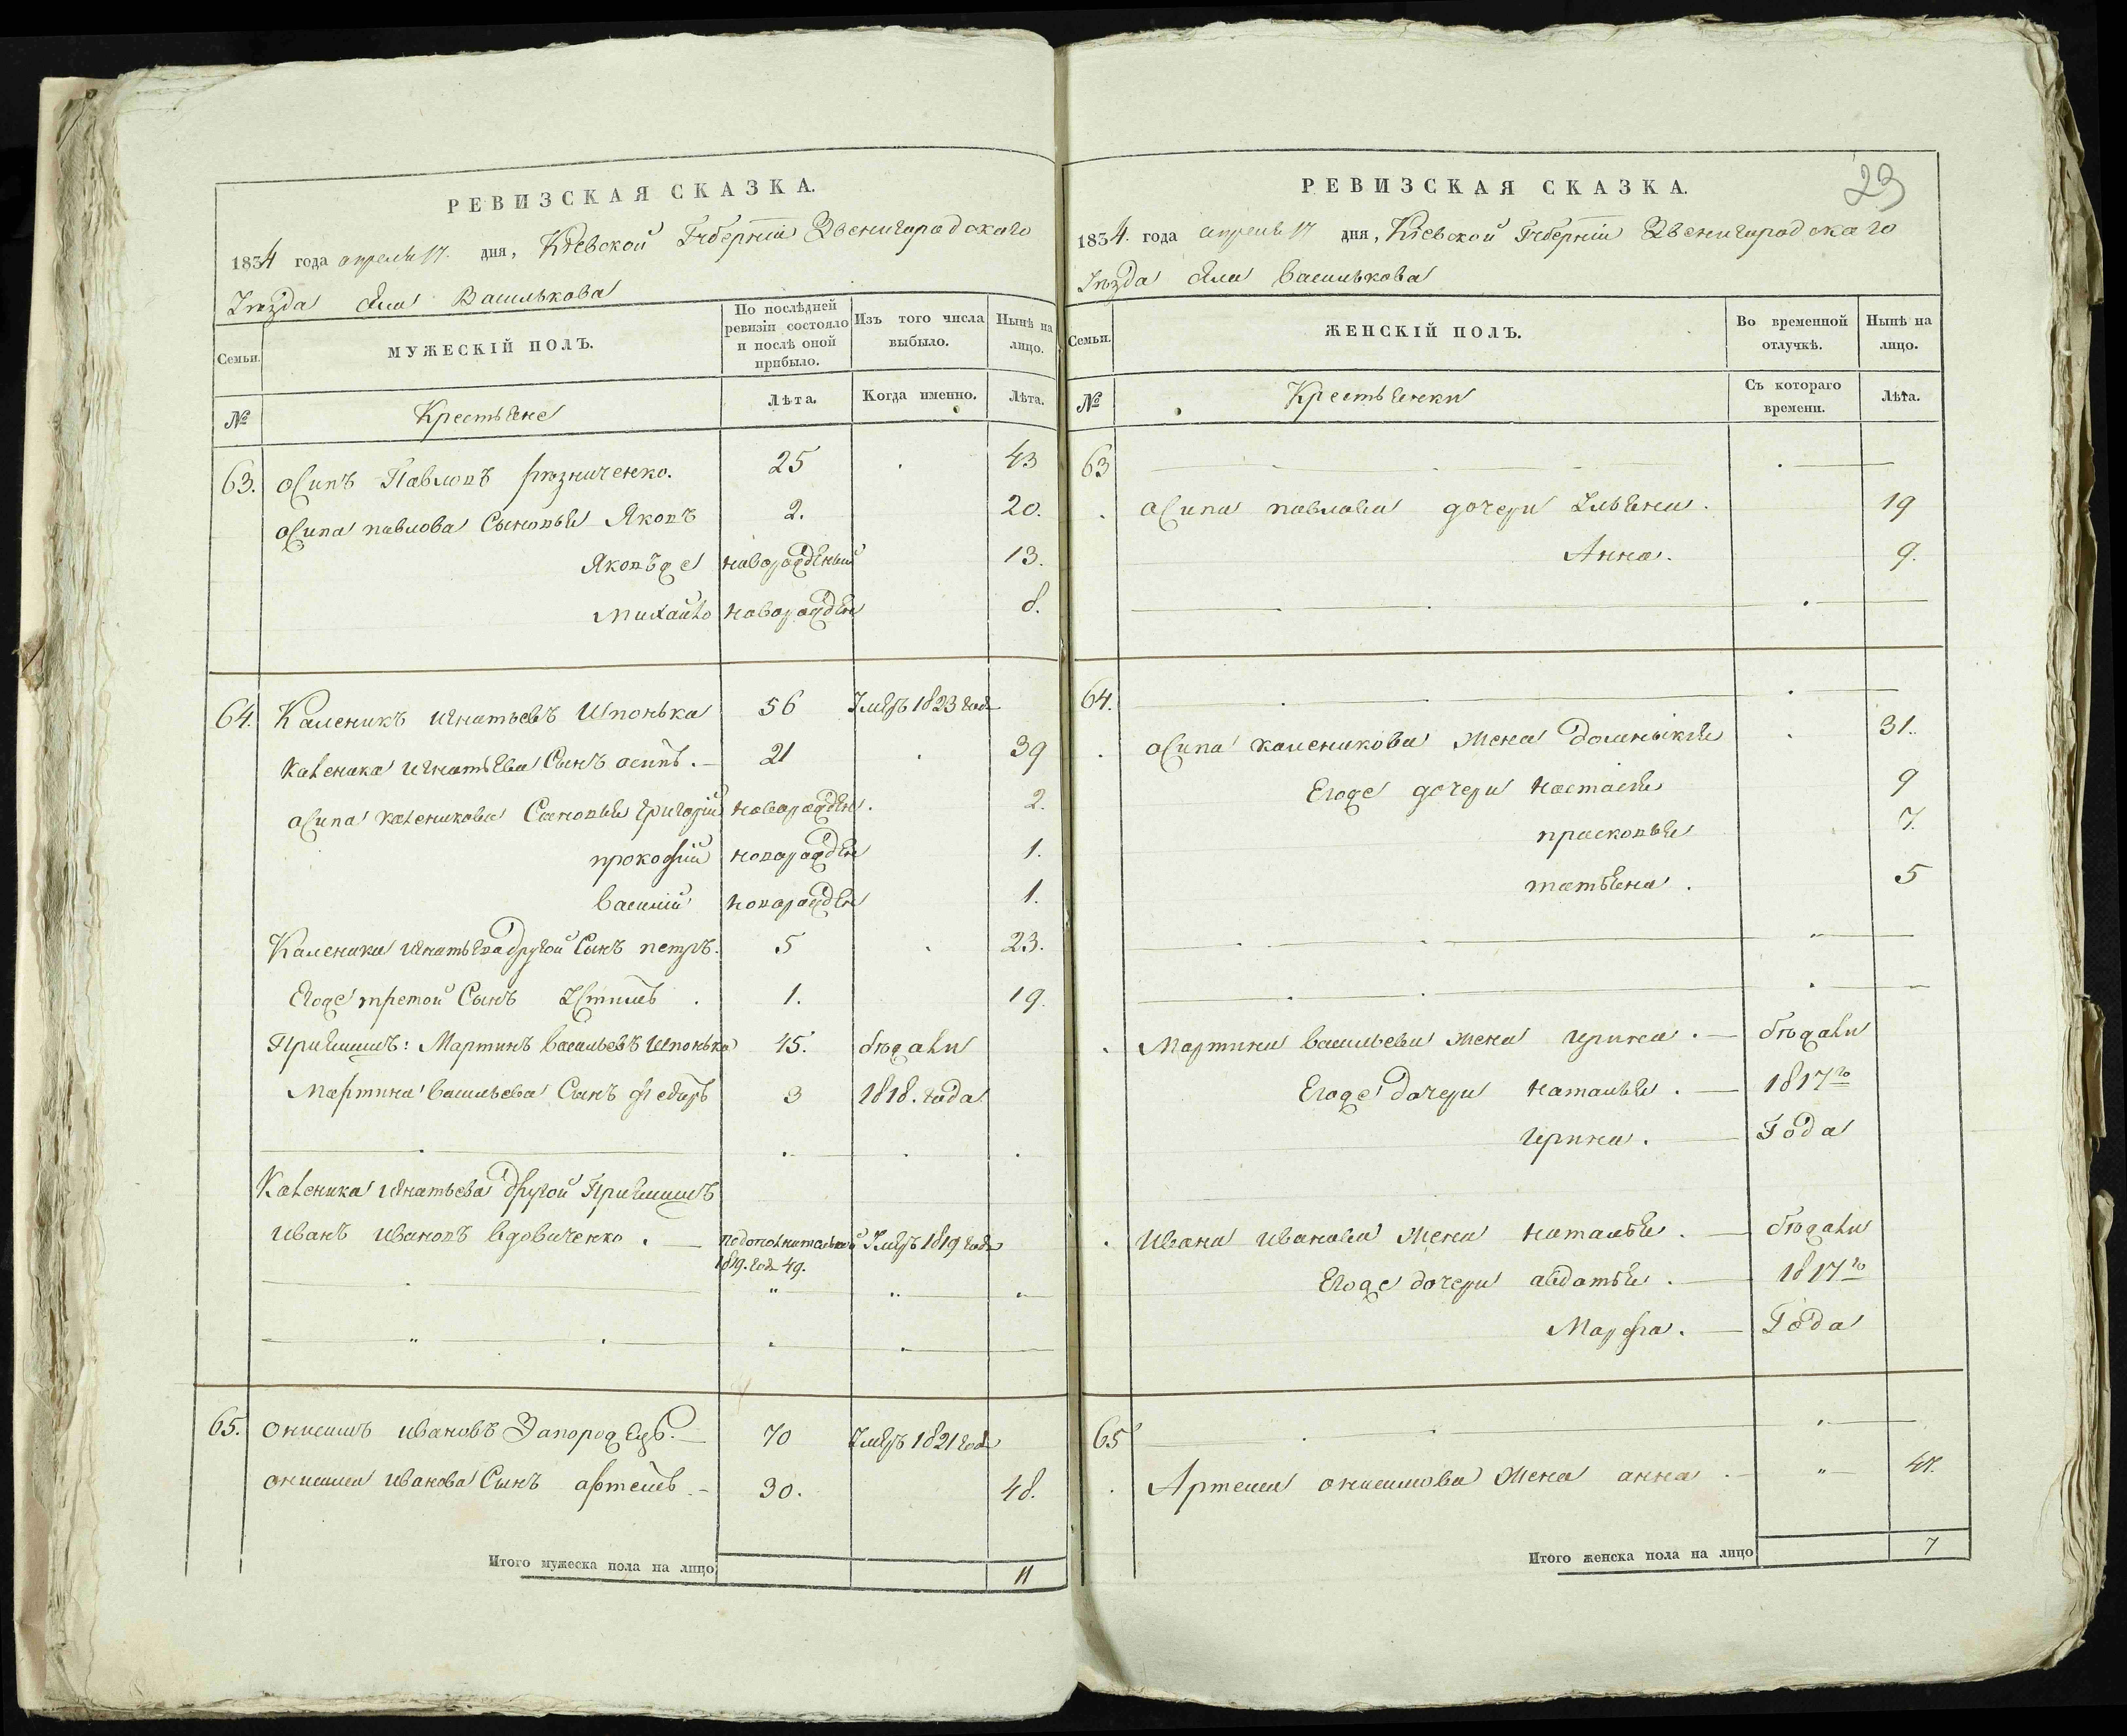 РЕВИЗСКАЯ СКАЗКА.
1834 года апреля 17. дня, Кіевской Губерніи Звенигородскаго
Уѣзда села Василькова
Семьи.
МУЖЕСКІЙ ПОЛЪ.
По послѣдней ревизіи состояло и послѣ оной прибыло.
Изъ того числа выбыло.
Нынѣ на лицо.
№
Крестьяне
Лѣта.
Когда именно.
Лѣта.
63. осипъ Павловъ рѣзниченко. 25 43
осипа павлова Сыновья Яковъ 2. 20.
Яковъ же новорожденый 13.
михайло новорожден 8.
64. Каленикъ игнатьевъ Шпонька 56 Умеръ 1823 года
каленика игнатьева Сынъ осипъ. 21 39
осипа каленикова Сыновья григорій новорожден. 2.
прокофій новорожден 1.
василій новорожден 1.
Каленика игнатьева другой Сынъ петръ. 5 23.
Егоже третой Сынъ Устимъ 1. 19.
Приймишъ: Мартинъ васильевъ Шпонька 45. бѣжали
Мартина васильева Сынъ федиръ 3 1818. года
Каленика игнатьева другой Приймишъ
иванъ ивановъ вдовиченко. подополнительной Умеръ 1819 года
1819. года 49.
65. онисимъ ивановъ Запорожецъ. 70 Умеръ 1821 года
онисима иванова Сынъ артемъ. 30. 48.
Итого мужеска пола на лицо 11
23
РЕВИЗСКАЯ СКАЗКА.
1834. года апреля 17 дня, Кіевской Губерніи Звенигородскаго
Уѣзда села василькова
Семьи.
ЖЕНСКІЙ ПОЛЪ.
Во временной отлучкѣ.
Нынѣ на лицо.
№
Крестьянки
Съ котораго времени.
Лѣта.
63
осипа павлова дочери Ульяна. 19
Анна. 9.
64.
осипа каленикова жена домникия 31.
Егоже дочери настасия 9
прасковья 7.
татьяна. 5
Мартина васильева жена ирина. бѣжали
Егоже дочери наталья. 1817го
ирина. Года
ивана иванова жена наталья. бѣжали
Егоже дочери авдотья. 1817го
Марфа. Года
65
Артема онисимова жена анна 47.
Итого женска пола на лицо 7